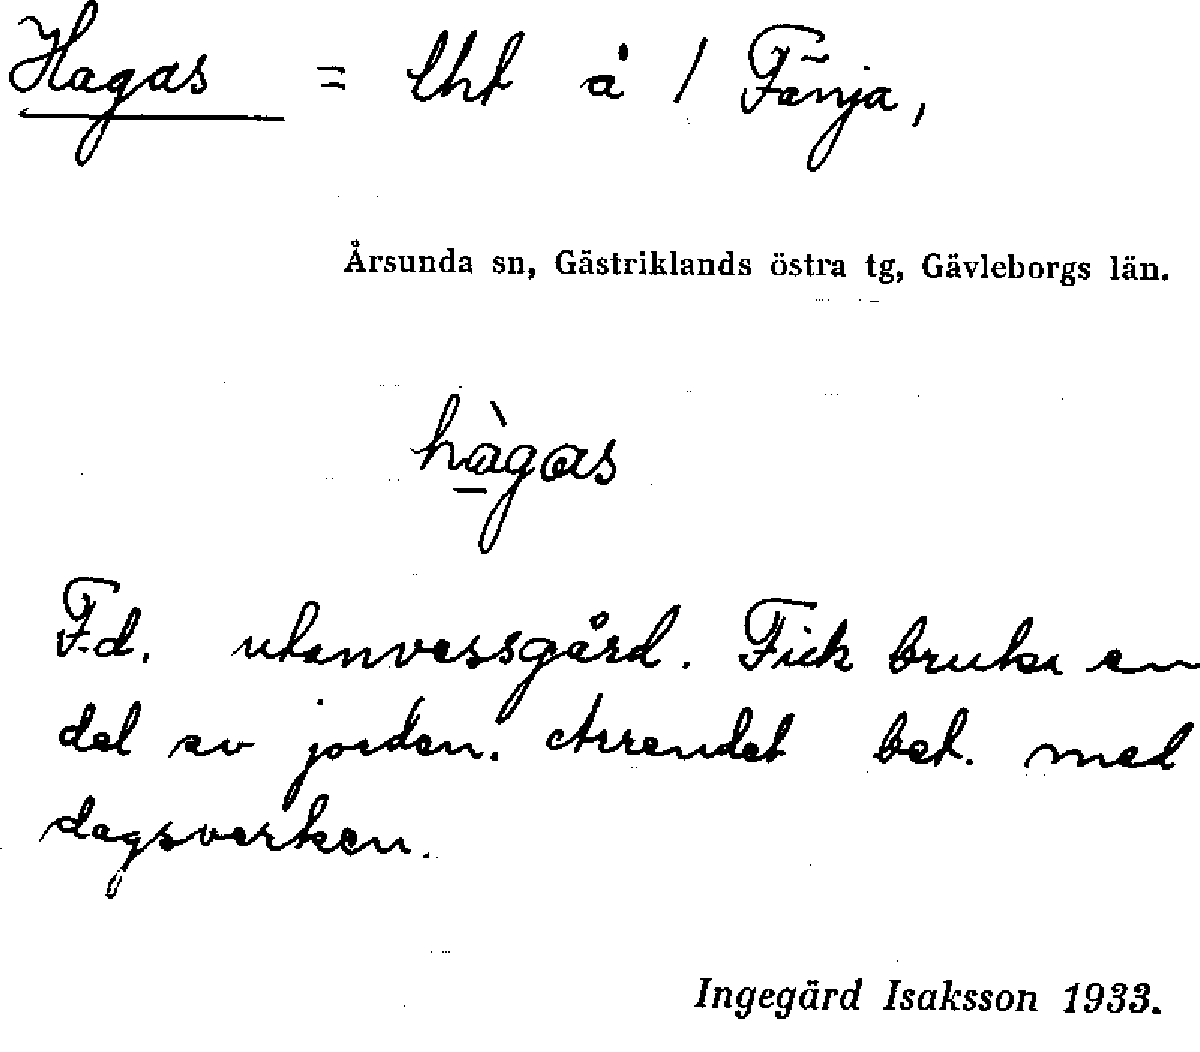 Hagas = lht å 1 Fänja,
Årsunda sn, Gästriklands östra tg, Gävleborgs län.
hàgas
F.d. utanvessgård. Fick bruka en
del av jorden. Arrendet bet. med
dagsverken.
Ingegärd Isaksson 1933.